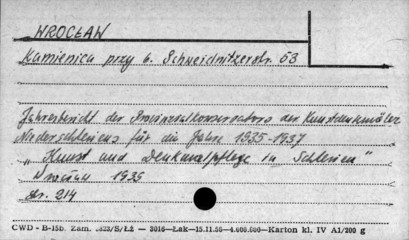 WROCŁAW
Kamienica przy b. Schweidnitzerstr. 53
Jahresbericht der Provinzialkonservators der Kunstdenkmäler
Niederschlesiens für die Jahre 1935-1937
"Kunst und Denkmalpflege in Schlesien"
Wrocław 1939
str. 214
CWD - B-15b. Zam. 5823/S/ŁŻ — 3016—Łak—15.11.55—4.000.000—Karton kl. IV A1/200 g